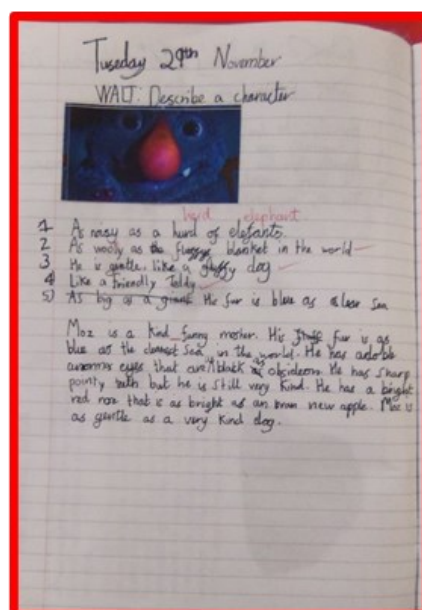 Tuseday 29th November
WALT: Describe a character
herd elephant
1 As noisy as a hurd of elefants.
2 As wooly as the blanket in the world
3 He is gentle, like a dog
4 Like a friendly Teddy
5) As big as a giant His fur is blue as sea
Moz is a kind funny monster. His fur is as
blue as the clearest sea in the world. He has adorble
eyes that are black as obsideon. He has sharp
pointy teeth but he is still very kind. He has a bright
red nose that is as bright as an new apple. Moz is
as gentle as a very kind dog.